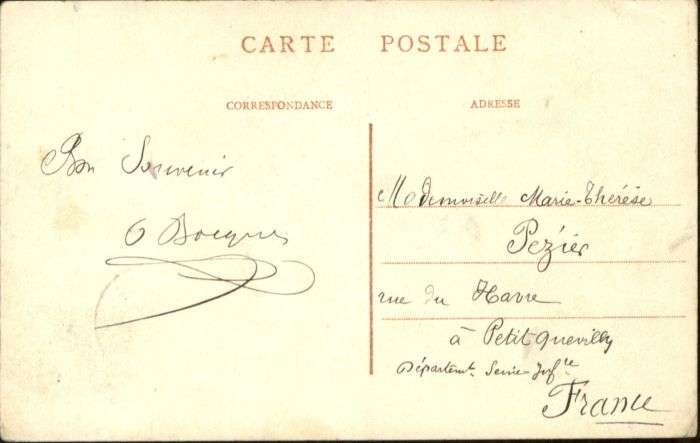 CARTE POSTALE
CORRESPONDANCE
ADRESSE
Bon Souvenir
O Bocquet
Mademoiselle Marie-Thérèse
Pezier
rue du Havre
à Petit Quevilly
Départemt. Seine-Infre
France